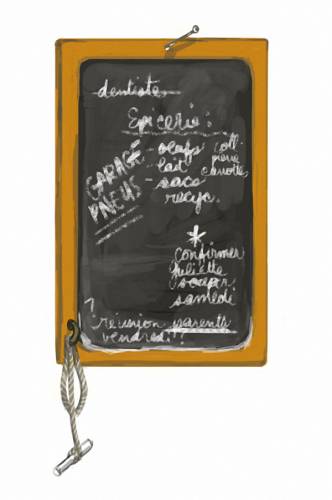 dentiste
Epicerie:
- oeufs
lait
- sacs
recyc.
coll.
pierre
carottes
GARAGE
PNEUS
*
confirmer
Juliette
souper
samedi
? réunion parents
vendredi ??